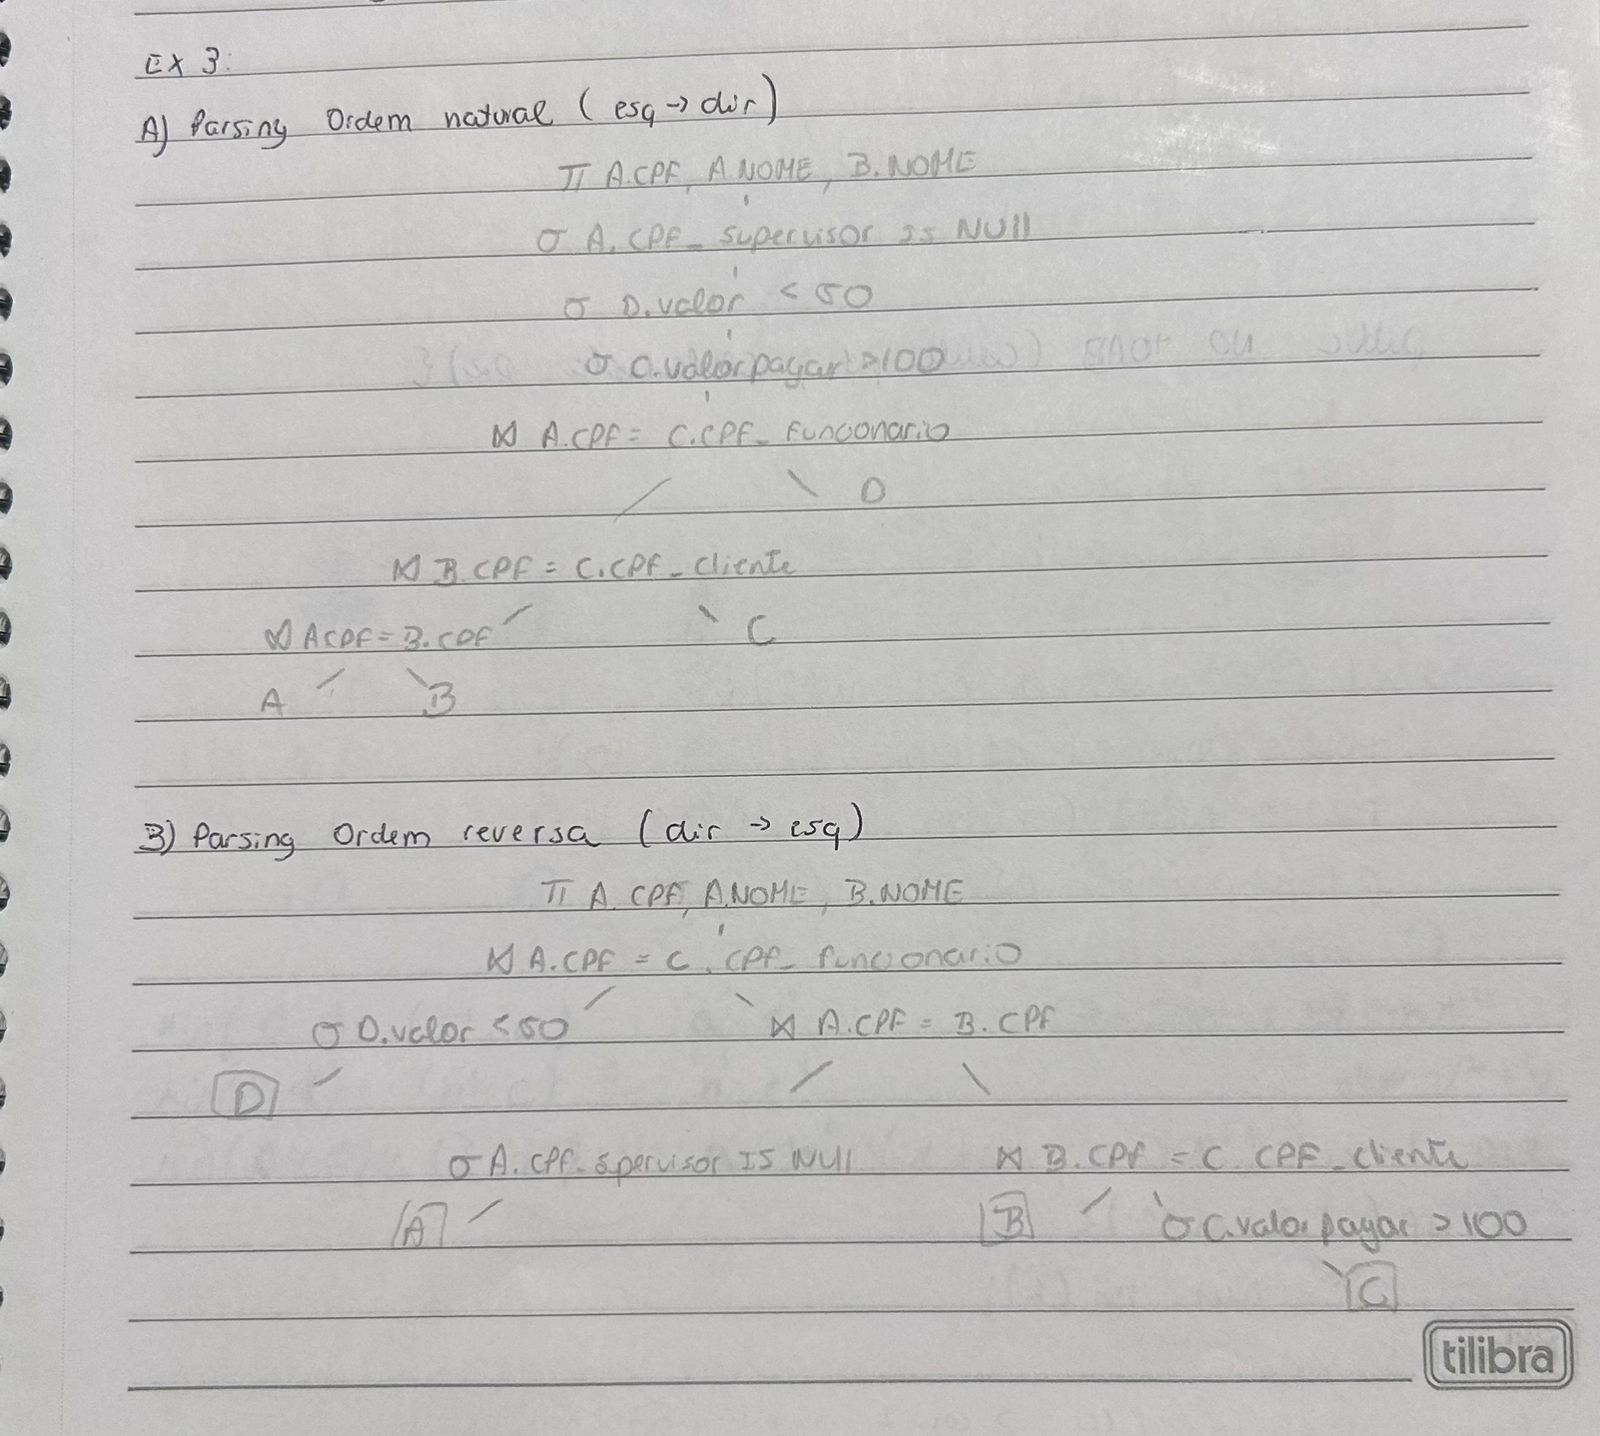 EX 3:
A) Parsing Ordem natural (esq → dir)
π A.CPF, A.NOME, B.NOME
σ A.CPF_supervisor IS NUll
σ D.valor < 50
σ C.valorpagar >100
⋈ A.CPF = C.CPF_funcionario
D
⋈ B.CPF = C.CPF_cliente
⋈ A CPF = B.CPF
C
A B
B) Parsing Ordem reversa (dir → esq)
π A.CPF, A.NOME, B.NOME
⋈ A.CPF = C.CPF_funcionario
σ D.valor <50 ⋈ A.CPF = B.CPF
D
σ A.CPF_spervisor IS NUll ⋈ B.CPF = C.CPF_cliente
A B σ C.valorpagar >100
C
tilibra